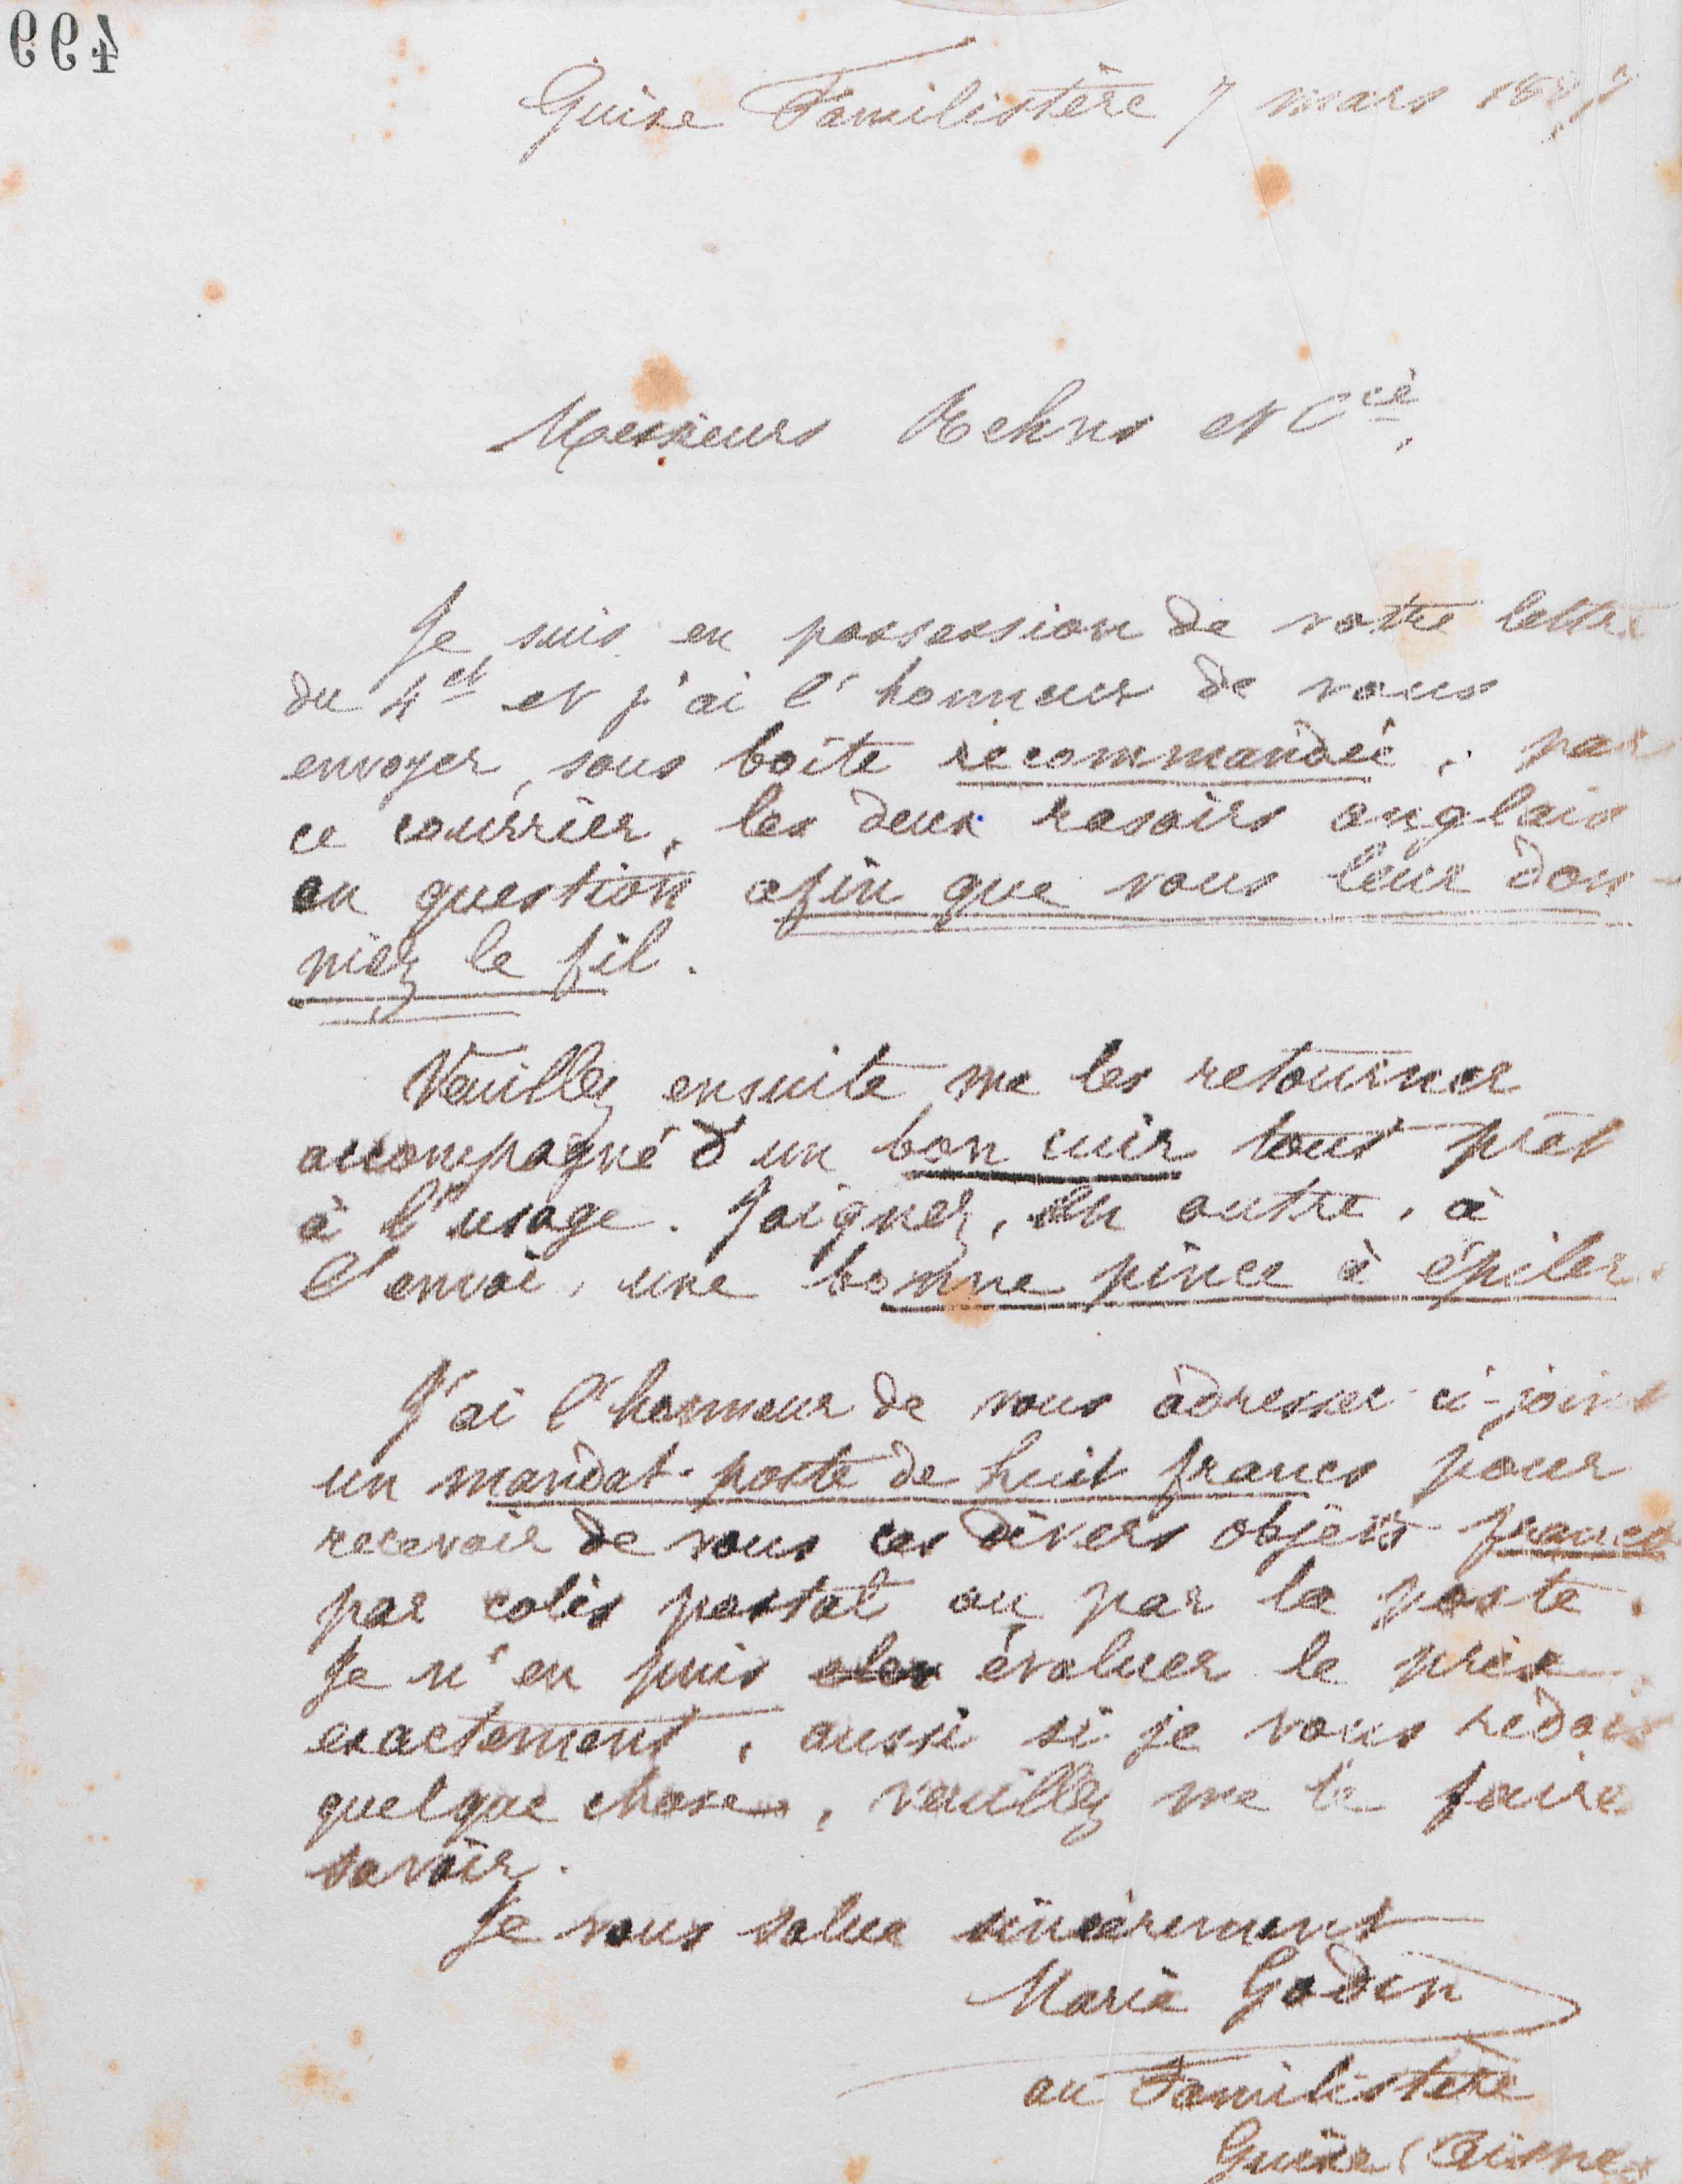 499
Guise Familistère 7 mars 1897
Messieurs Rehns et Cie,
Je suis en possession de votre lettre
du 4 ct et j'ai l'honneur de vous
envoyer, sous boîte recommandée, par
ce courrier, les deux rasoirs anglais
en question afin que vous leur don-
niez le fil.
Veuillez ensuite me les retourner
accompagné d'un bon cuir tout prêt
à l'usage. Joignez, en outre, à
l'envoi, une bonne pince à épiler.
J'ai l'honneur de vous adresser ci-joint
un mandat-poste de huit francs pour
recevoir de vous ces divers objets franco
par colis postal ou par la poste.
Je n'en puis évaluer le prix
exactement, aussi si je vous redois
quelque chose, veuillez me le faire
savoir.
Je vous salue sincèrement
Marie Godin
au Familistère
Guise (Aisne)